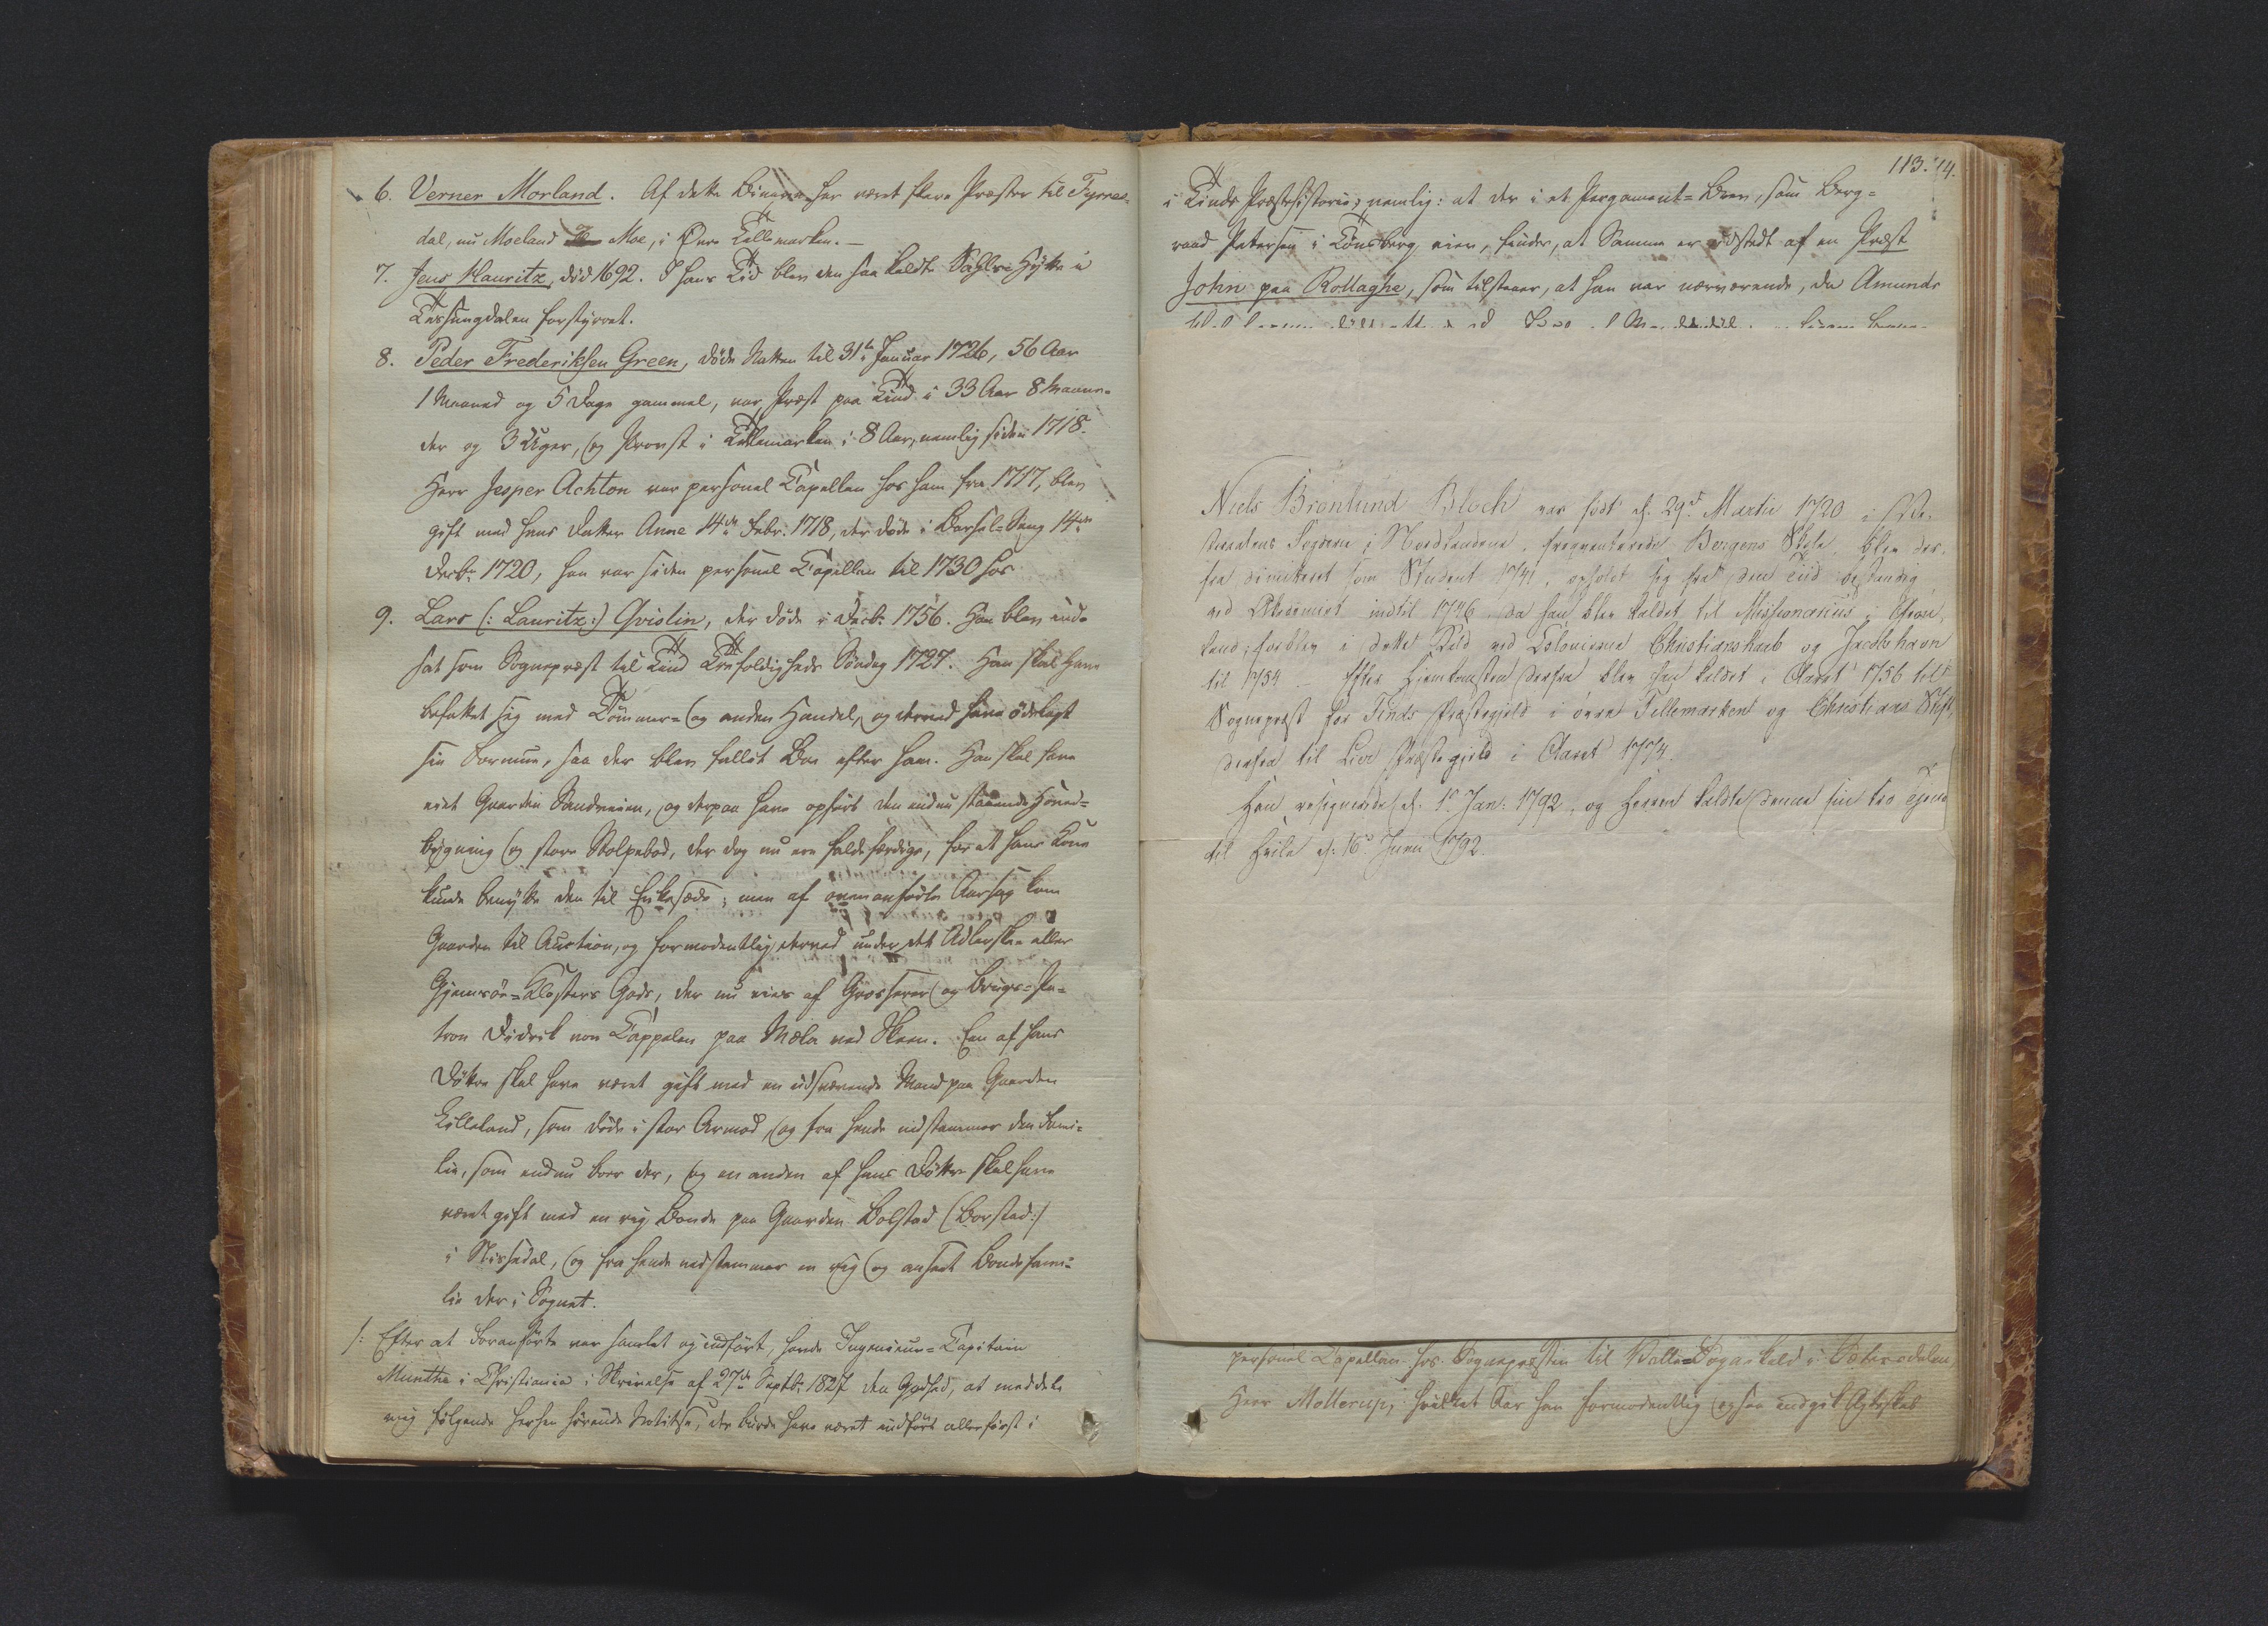 6. Verner Morland. Af dette Binavn har været flere Præster til Tyrres-
dal, nu Moeland Moe, i Øvre Tellemarken. –
7. Jens Mauritz, död 1692. I hans Tid blev den saa kaldte Hytte i
Tessungdalen forstyrret.
8. Peder Frederiksen Green, döde Natten til 31te Januar 1726, 56 Aar
1 Maaned og 5 Dage gammel, var Præst paa Tind i 33 Aar 8 Maane-
der og 3 Uger, og Provst i Tellemarken i 8 Aar, nemlig siden 1718.
Herr Jesper Achton var personel Capellan hos ham fra 1717, blev
gift med hans Datter Anne 14de Febr: 1718, der døde i Barsel-Seng 14de
Decbr 1720, han var siden personel Capellan til 1730 hos
9. Lars (: Lauritz :) Qvislin, der døde i Decbr 1756. Han blev ind-
sat som Sognepræst til Tind Trefoldigheds Söndag 1727. Han skal have
befattet sig med Tömmer- og anden Handel, og derved have ödelagt
sin Formue, saa der blev fallit Boe efter ham. Han skal have
eiet Gaarden Sandveien, og derpaa have opfört den endnu staaende Hoved-
bygning og store Stolpebod, der dog nu ere faldefærdige, for at hans Kone
kunde benytte den til Enkesæde; men af ovenanførte Aarsag kom
Gaarden til Auction, og formodentlig derved under det Adlerske eller
Gjemsöe-Klosters Gods, der nu eies af Grosserer og Brugs-Pa-
tron Didrik von Cappelen paa Mæla ved Skeen. Een af hans
Döttre skal have været gift med en udsvævende Mand paa Gaarden
Lilleland, som døde i stor Armod, og fra hende nedstammer den Fami-
lie, som endnu boer der, og en anden af hans Döttre skal have
været gift med en rig Bonde paa Gaarden Bolstad (Borstad:)
i Nissedal, og fra hende nedstammer en rig og anseet Bondefami-
lie der i Sognet.
/: Efter at Foranførte var samlet og indfört, havde Ingenieur-Capitain
Munthe i Christiania i Skrivelse af 27de Septbr 1827 den Godhed, at meddele
mig følgende herhen hörende Notitse, der burde have været indfört allerförst i
113. 14.
i Tinds Præstehistorie, nemlig: at der i et Pergament-Brev, som Berg-
raad Petersen i Kongsberg eier, findes, at Samme er udstedt af en Præst
John paa Rollaghe, som tilstaaer, at han var nærværende, da Amunds
Niels Brönlund Bloch var født d. 29d Martii 1720 i
Fogderie i Nordlandene, freqventerede Bergens Skole, blev der-
fra dimitteret som Student 1741, opholdt sig fra den Tiid bestandig
ved Akademiet indtil 1746 da han blev kaldet til Missionarius i Grøn-
land; forblev i dette Kald ved Colonierne Christianshaab og Jacobshavn
til 1754 – Efter Hjemkomsten derfra blev han kaldet i Aaret 1756 til
Sognepræst for Tinds Præstegjeld i övre Tellemarken og Christians Stift,
derfra til Lier Præstegjeld i Aaret 1774.
Han resignerede d. 1e Jan: 1792, og Herren kaldte denne sin tro Tjener
til Hvile d: 16de Junii 1792.
personel Capellan hos Sognepræsten til Valle-Sognekald i Sætersdalen
Herr Mollerup, hvilket Aar han formodentlig ogsaa indgik Ægteskab